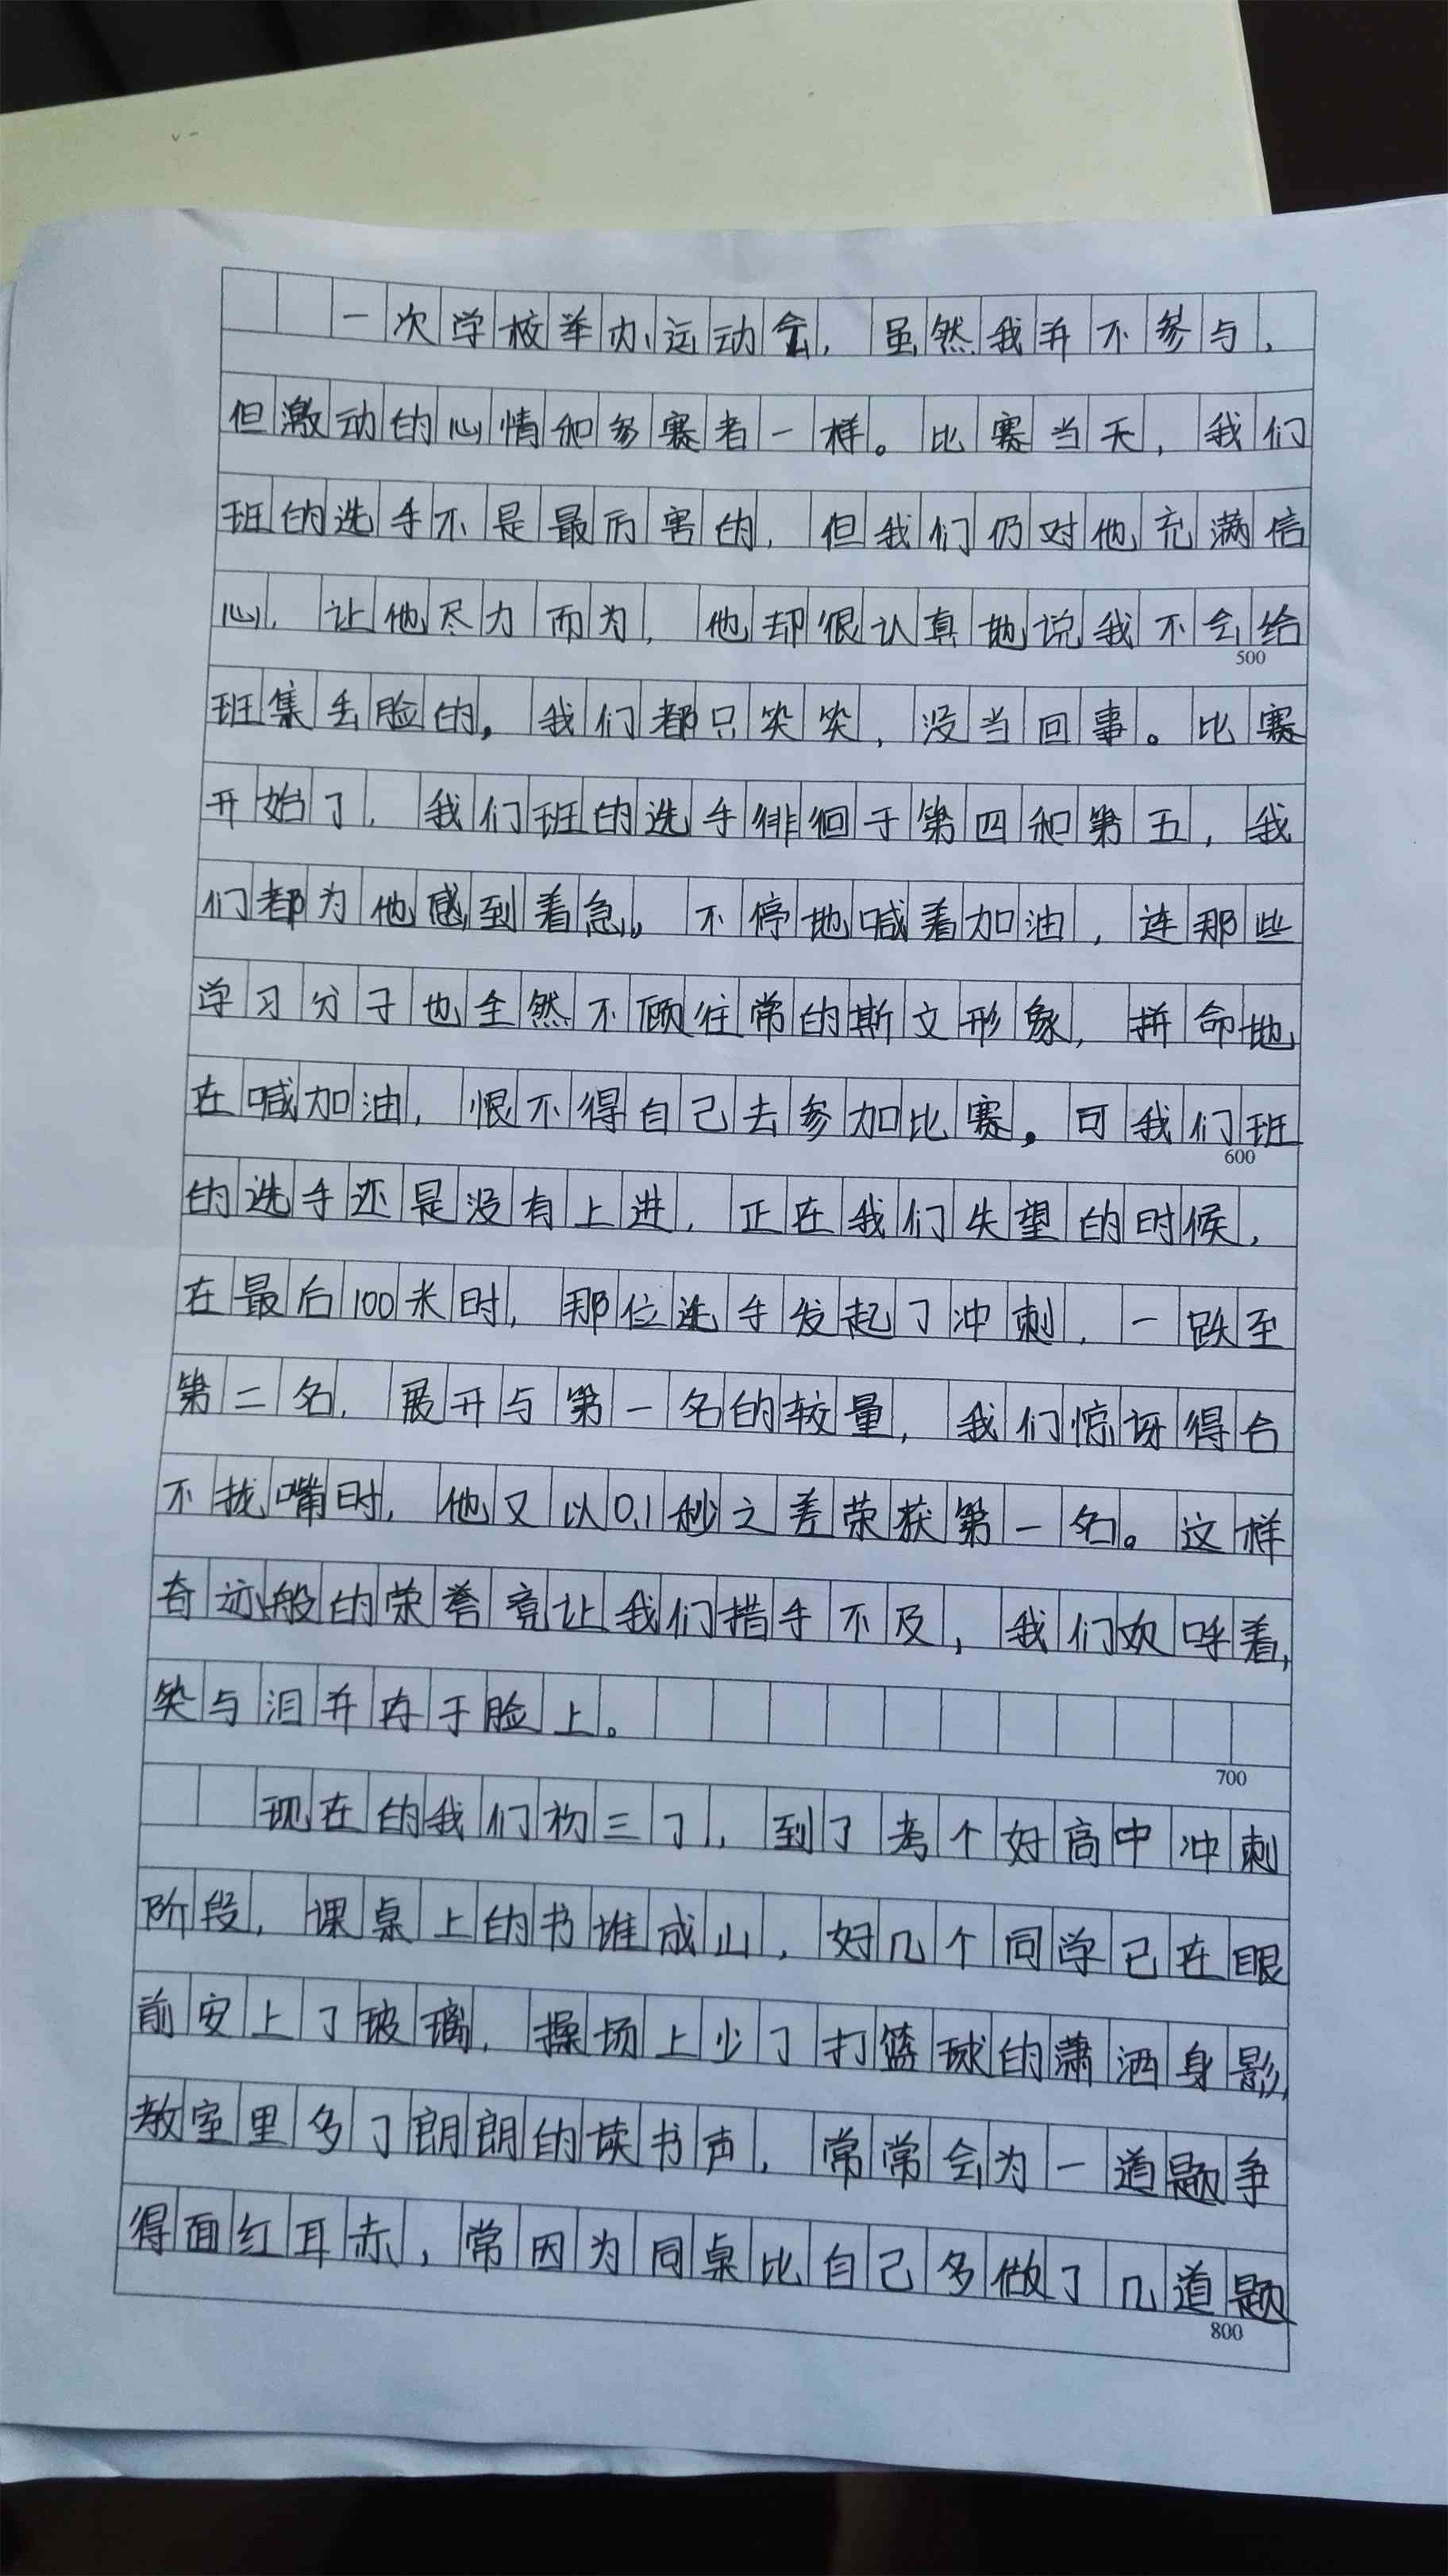 一次学校举办运动会，虽然我并不参与，
但激动的心情和参赛者一样。比赛当天，我们
班的选手不是最厉害的，但我们仍对他充满信
心，让他尽力而为，他却很认真地说我不会给
500
班集丢脸的，我们都只笑笑，没当回事。比赛
开始了，我们班的选手徘徊于第四和第五，我
们都为他感到着急。不停地喊着加油，连那些
学习分子也全然不顾往常的斯文形象，拼命地
在喊加油，恨不得自己去参加比赛，可我们班
600
的选手还是没有上进，正在我们失望的时候，
在最后100米时，那位选手发起了冲刺，一跌至
第二名，展开与第一名的较量，我们惊讶得合
不拢嘴时，他又以0.1秒之差荣获第一名。这样
奇迹般的荣誉竟让我们措手不及，我们欢呼着，
笑与泪并存于脸上。
700
现在的我们初三了，到了考个好高中冲刺
阶段，课桌上的书堆成山，好几个同学已在眼
前安上了玻璃，操场上少了打篮球的潇洒身影
教室里多了朗朗的读书声，常常会为一道题争
得面红耳赤，常因为同桌比自己多做了几道题
800